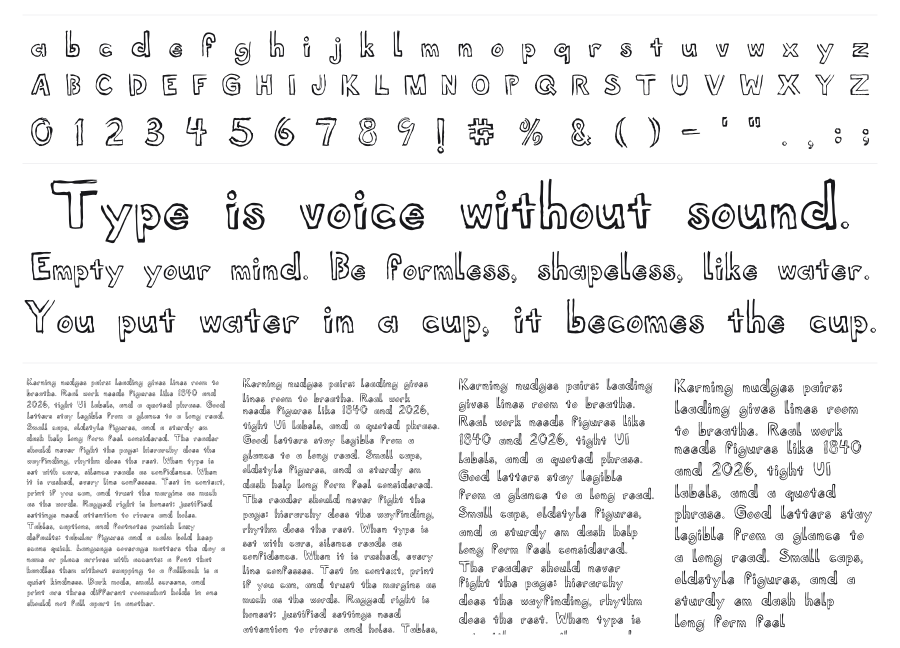 a b c d e f g h i j k l m n o p q r s t u v w x y z
A B C D E F G H I J K L M N O P Q R S T U V W X Y Z
0 1 2 3 4 5 6 7 8 9 ! # % & ( ) – ' " . , : ;
Type is voice without sound.
Empty your mind. Be formless, shapeless, like water.
You put water in a cup, it becomes the cup.
Kerning nudges pairs: Leading gives lines room to
breathe. Real work needs figures like 1840 and
2026, tight UI labels, and a quoted phrase. Good
letters stay legible from a glance to a long read.
Small caps, oldstyle figures, and a sturdy em
dash help long form feel considered. The reader
should never fight the page: hierarchy does the
wayfinding, rhythm does the rest. When type is
set with care, silence reads as confidence. When
it is rushed, every line confesses. Test in context,
print if you can, and trust the margins as much
as the words. Ragged right is honest: justified
settings need attention to rivers and holes.
Tables, captions, and footnotes punish lazy
defaults: tabular figures and a calm bold keep
scans quick. Language coverage matters the day a
name or place arrives with accents: a font that
handles them without snapping to a fallback is a
quiet kindness. Dark mode, small screens, and
print are three different rooms: what holds in one
should not fall apart in another.
Kerning nudges pairs: Leading gives
lines room to breathe. Real work
needs figures like 1840 and 2026,
tight UI labels, and a quoted phrase.
Good letters stay legible from a
glance to a long read. Small caps,
oldstyle figures, and a sturdy em
dash help long form feel considered.
The reader should never fight the
page: hierarchy does the wayfinding,
rhythm does the rest. When type is
set with care, silence reads as
confidence. When it is rushed, every
line confesses. Test in context, print
if you can, and trust the margins as
much as the words. Ragged right is
honest: justified settings need
attention to rivers and holes. Tables,
Kerning nudges pairs: Leading
gives lines room to breathe.
Real work needs figures like
1840 and 2026, tight UI
labels, and a quoted phrase.
Good letters stay legible
from a glance to a long read.
Small caps, oldstyle figures,
and a sturdy em dash help
long form feel considered.
The reader should never
fight the page: hierarchy
does the wayfinding, rhythm
does the rest. When type is
Kerning nudges pairs:
Leading gives lines room
to breathe. Real work
needs figures like 1840
and 2026, tight UI
labels, and a quoted
phrase. Good letters stay
legible from a glance to
a long read. Small caps,
oldstyle figures, and a
sturdy em dash help
long form feel